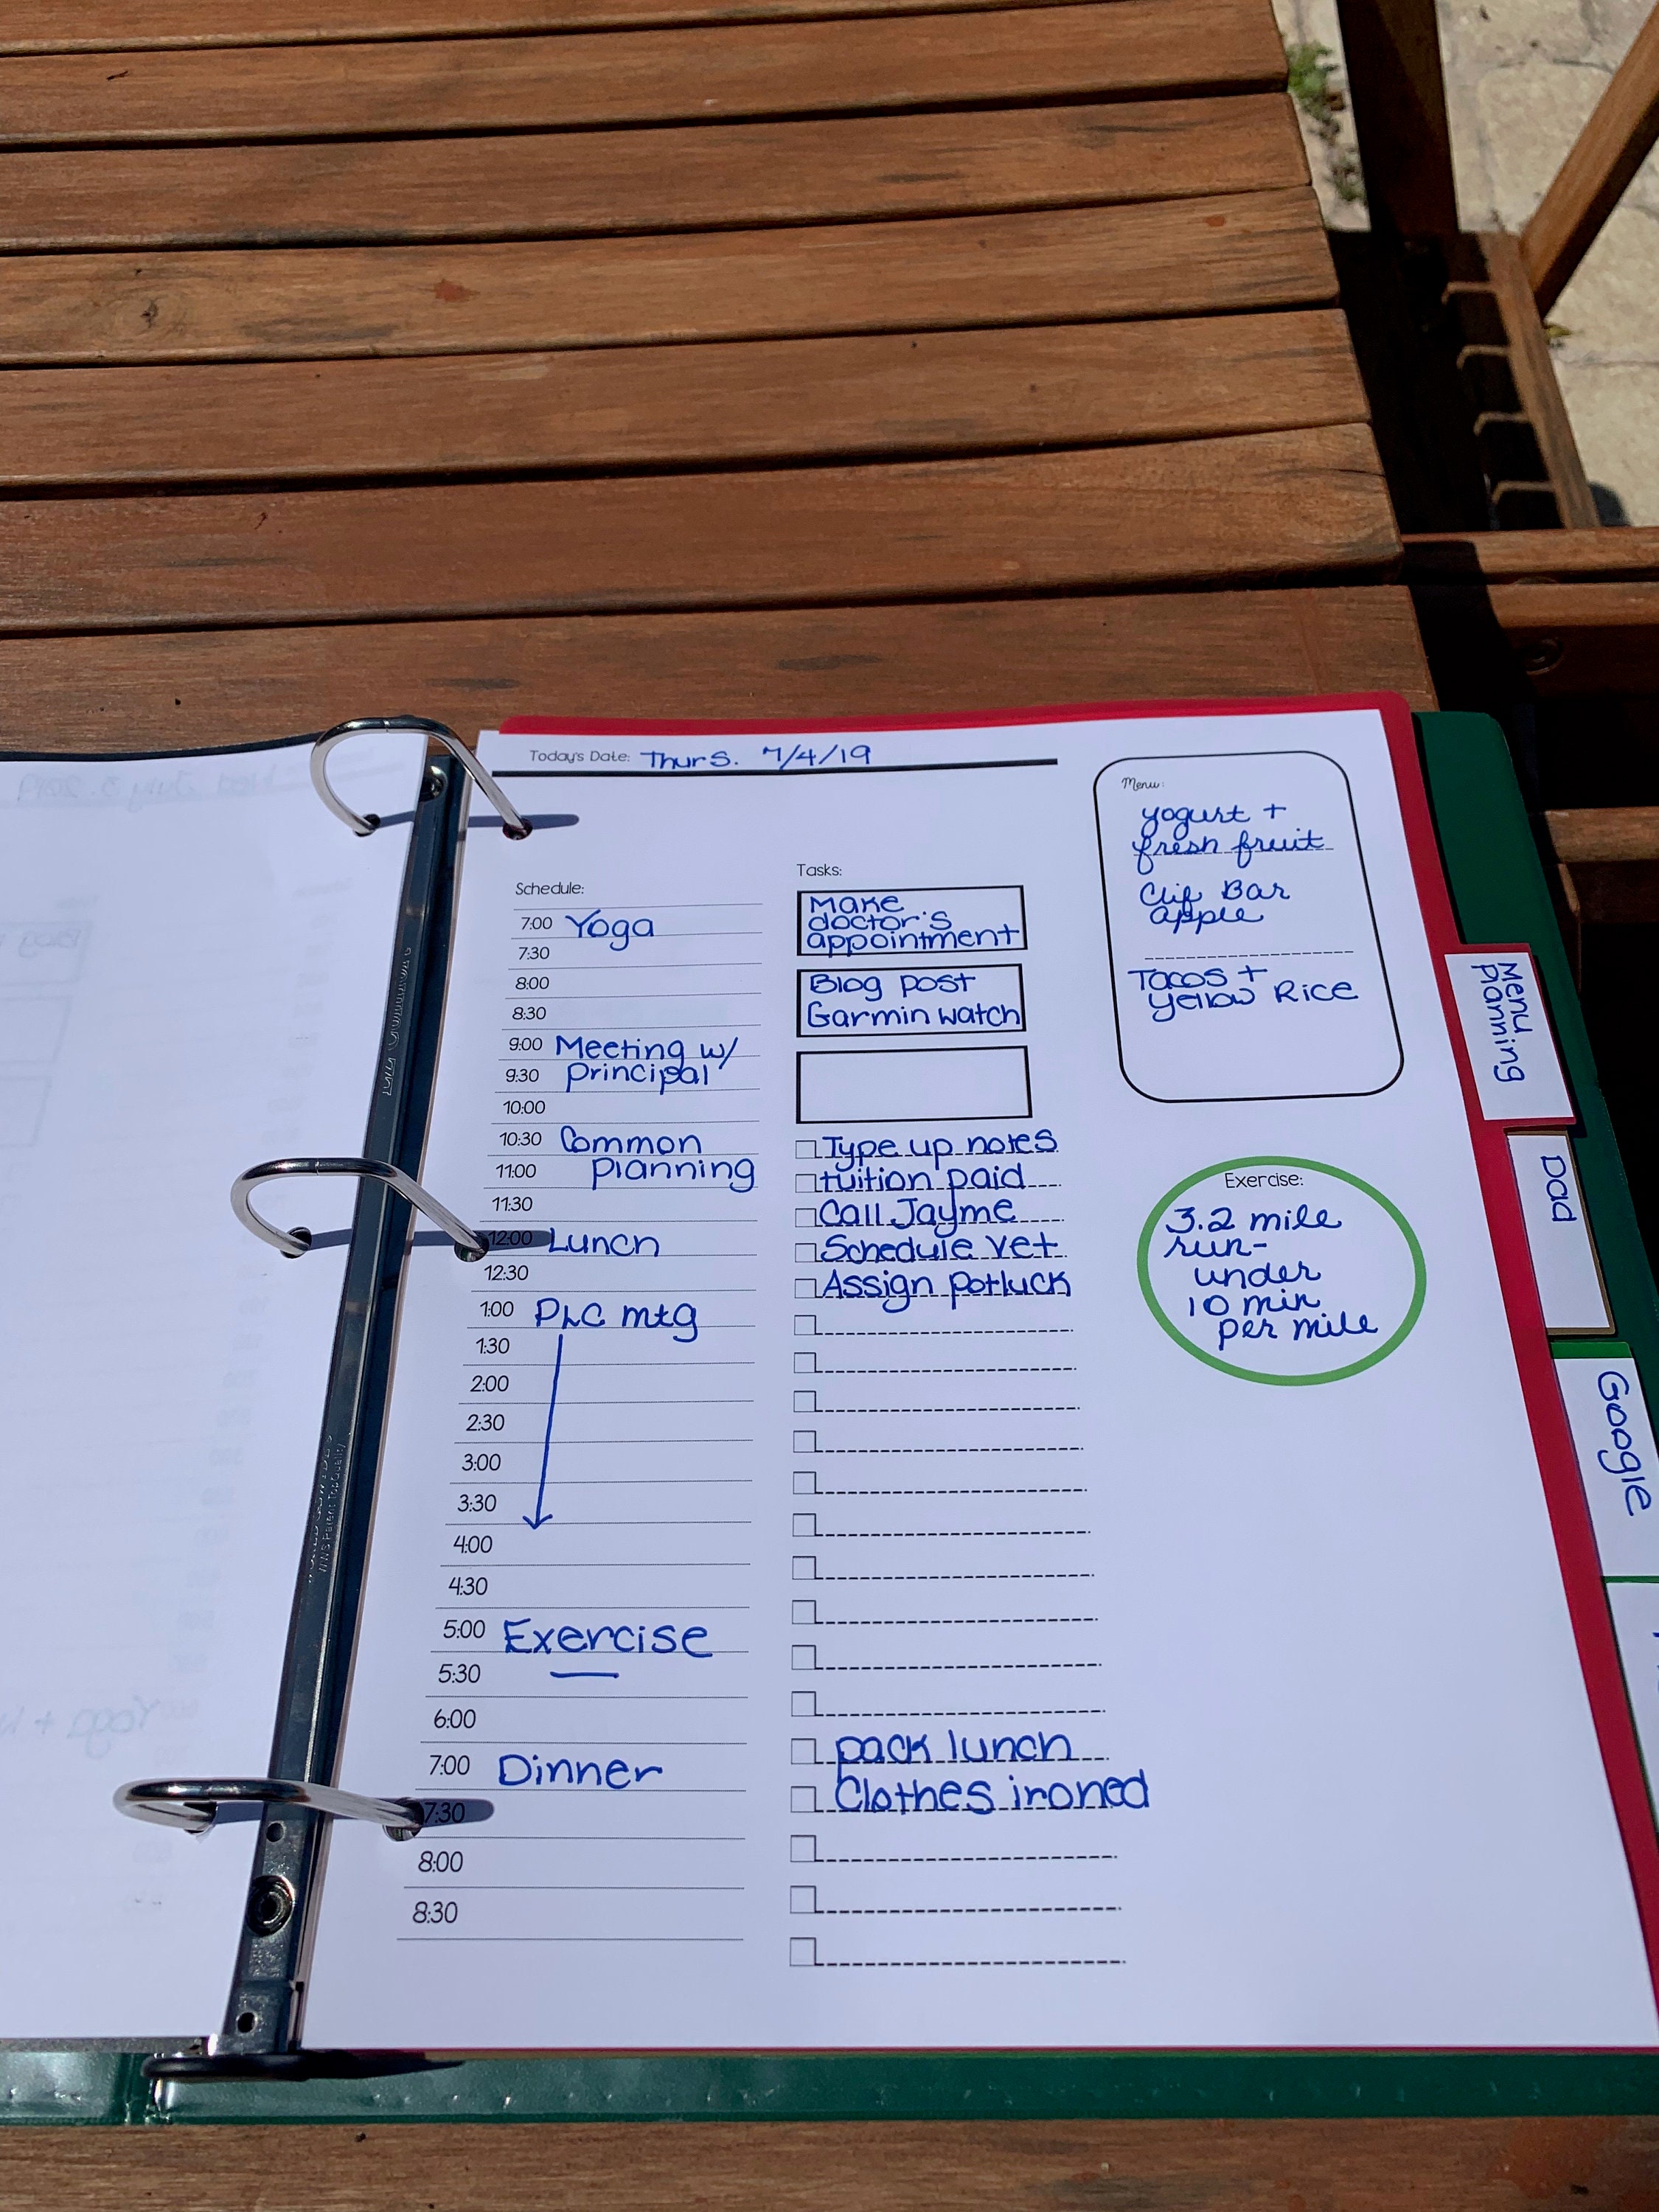 Today's Date: Thurs. 7/4/19
Schedule:
7:00 Yoga
7:30
8:00
8:30
9:00 Meeting w/
9:30 principal
10:00
10:30 Common
11:00 planning
11:30
12:00 Lunch
12:30
1:00 PLC mtg
1:30
2:00
2:30
3:00
3:30
4:00
4:30
5:00 Exercise
5:30
6:00
7:00 Dinner
7:30
8:00
8:30
Tasks:
Make
doctor's
appointment
Blog post
Garmin watch
Type up notes
tuition paid
Call Jayme
Schedule vet
Assign potluck
pack lunch
Clothes ironed
Menu:
yogurt +
fresh fruit
Clif Bar
apple
Tacos +
yellow Rice
Exercise:
3.2 mile
run-
under
10 min
per mile
Menu
Planning
Dad
Google
Wed July 3, 2019